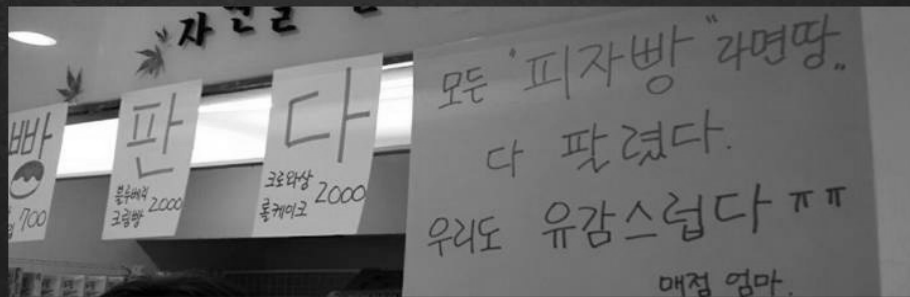 자연을
빵 판 다
700
블루베리
크림빵 2000
크로와상
롤케이크 2000
모든 "피자빵" 라면땅..
다 팔렸다.
우리도 유감스럽다 ㅠㅠ
매점 엄마.